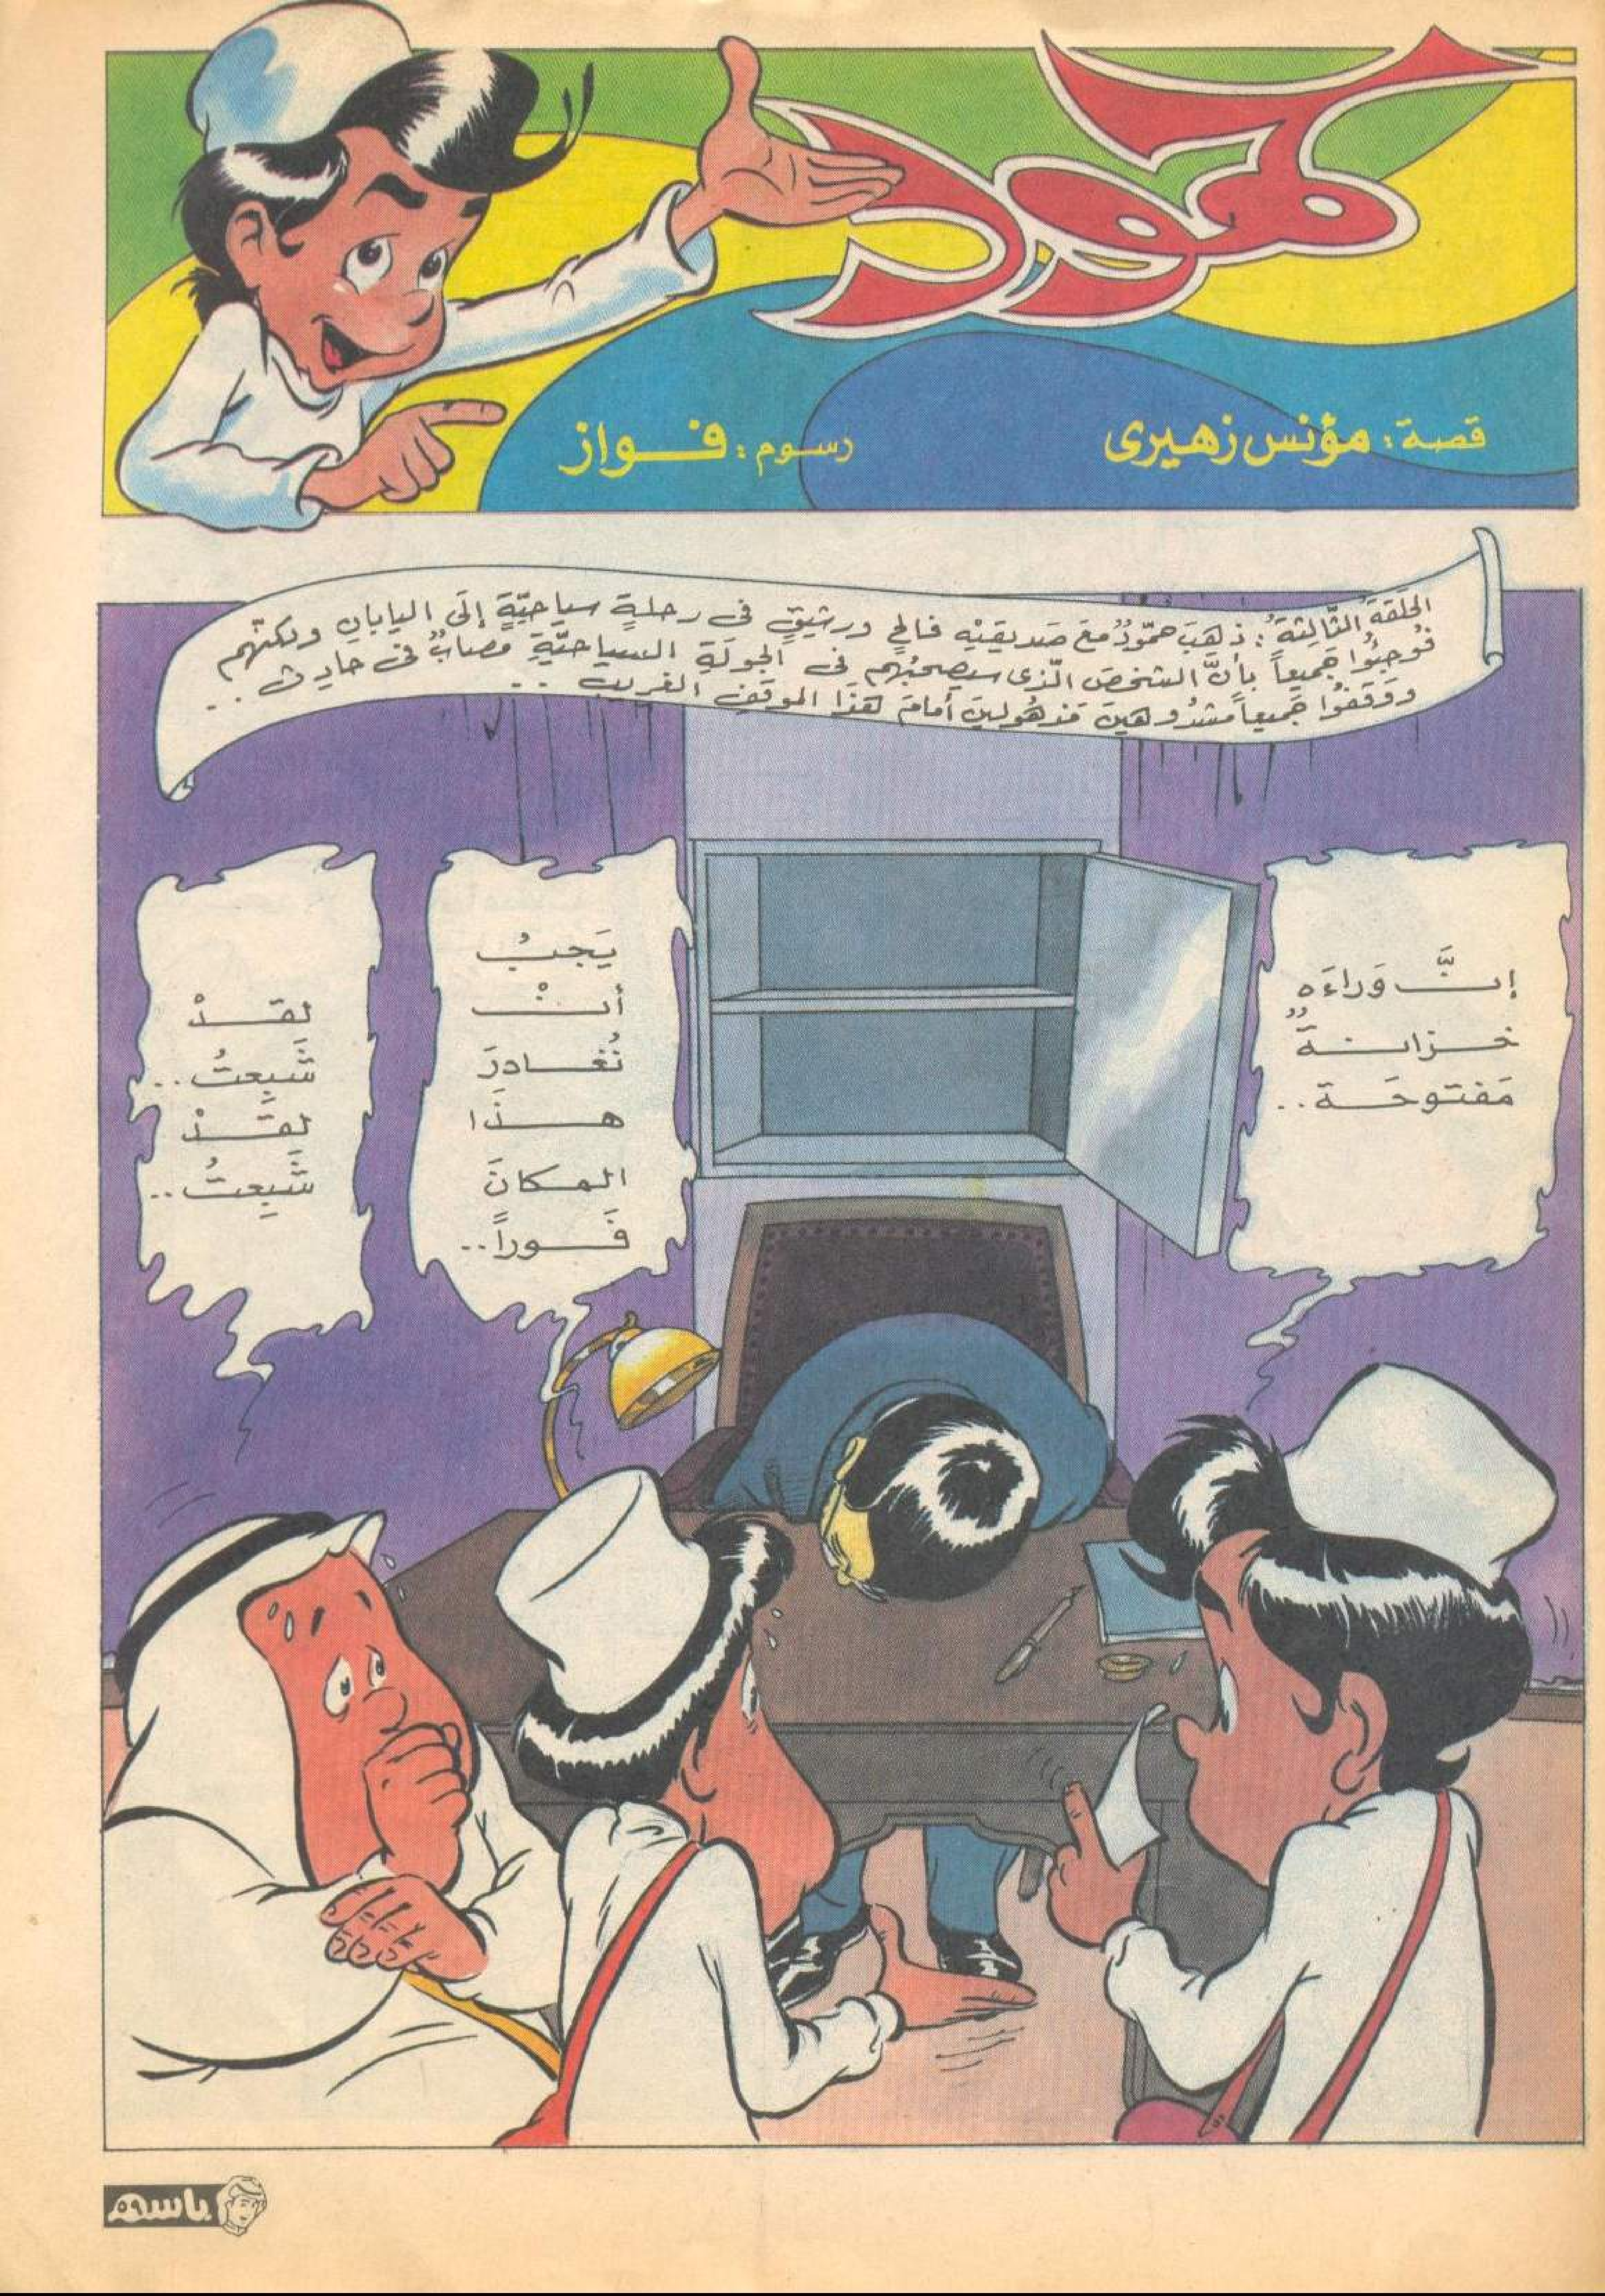 حمود
قصة: مؤنس زهيرى
رسوم: فواز
الحَلَقةُ الثَّالِثةُ: ذهَبَ حمّودٌ معَ صَديقَيْه فالحٍ ورشيقٍ فى رحلةٍ سياحيّةٍ إلَى اليابانِ ولكنّهم
فُوجِئُوا جَميعاً بأنَّ الشخصَ الّذى سيصحبُهم فى الجولَةِ السياحيّةِ مصابٌ فى حادِثٍ..
ووَقَفُوا جَميعاً مشدُوهينَ مَذهُولينَ أمامَ هَذَا الموقفِ الغريبِ..
إنَّ وَراءَه
خزانةٌ
مَفتوحَة..
يَجبُ
أنْ
نُغادرَ
هذَا
المكانَ
فَوراً..
لقَدْ
شَبِعتُ..
لقَدْ
شَبِعتُ..
باسم